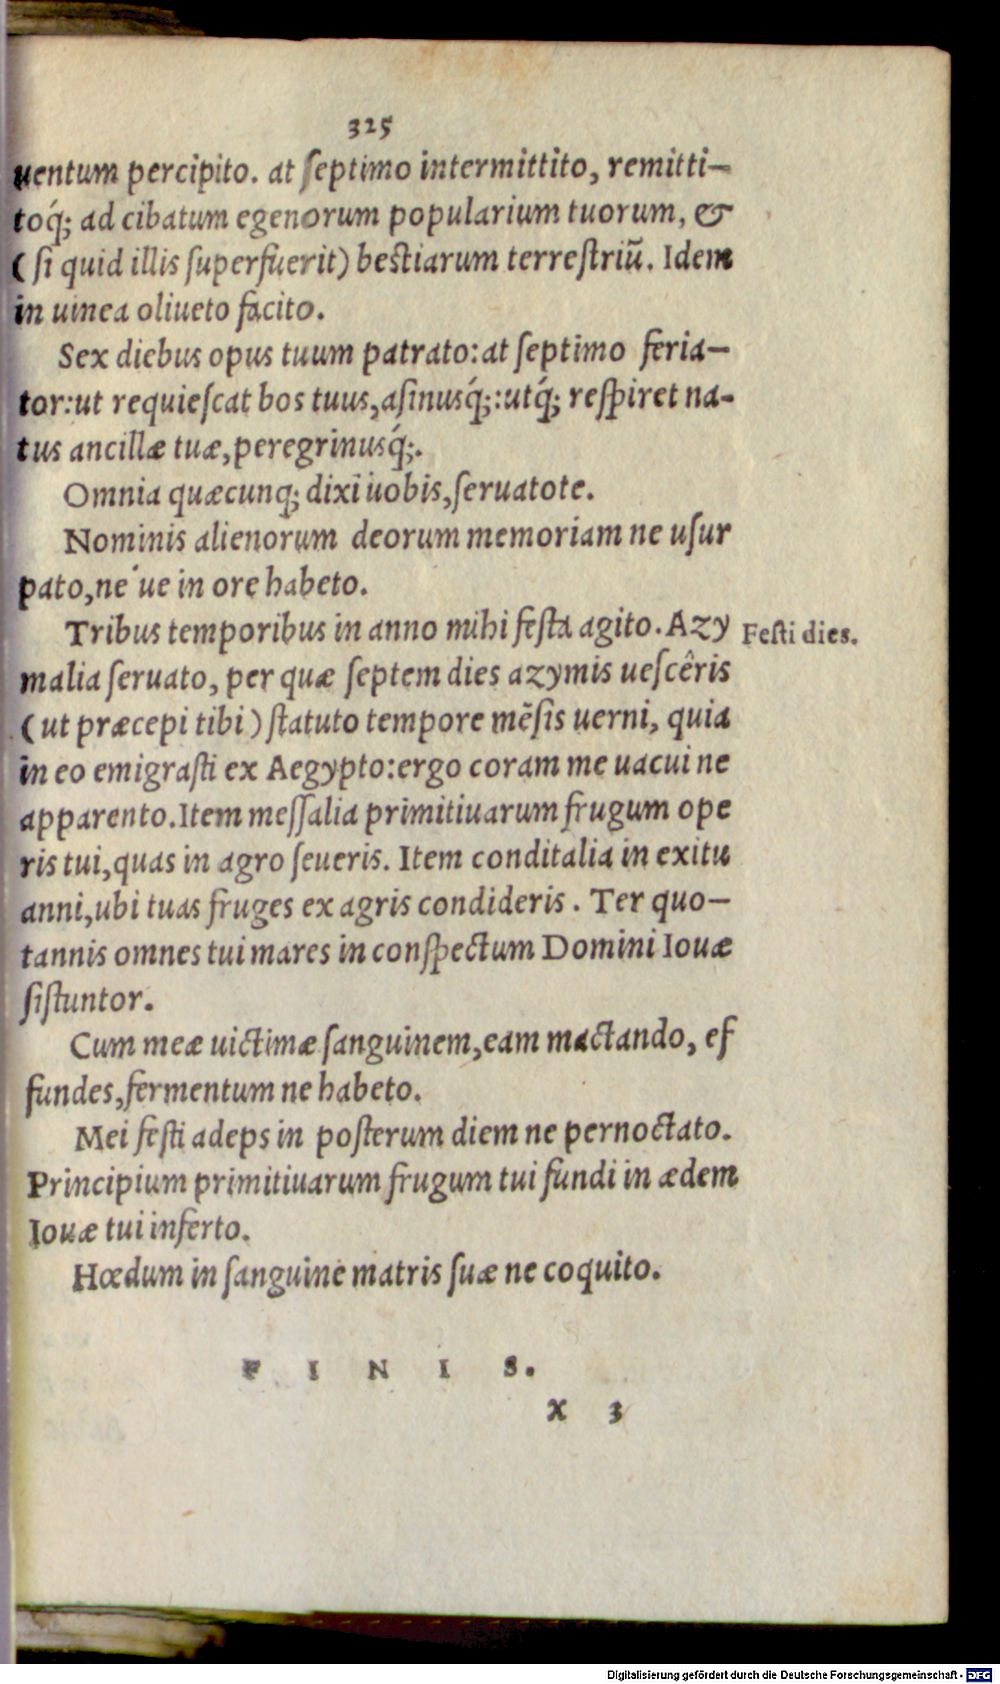 325
uentum percipito. at ſeptimo intermittito, remitti-
toq́; ad cibatum egenorum popularium tuorum, &
(ſi quid illis ſuperfuerit) beſtiarum terreſtriũ. Idem
in uinea oliueto facito.
Sex diebus opus tuum patrato: at ſeptimo feria-
tor: ut requieſcat bos tuus, aſinusq́;: utq́; reſpiret na-
tus ancillæ tuæ, peregrinusq́;.
Omnia quæcunq; dixi uobis, ſeruatote.
Nominis alienorum deorum memoriam ne uſur
pato, ne'ue in ore habeto.
Tribus temporibus in anno mihi feſta agito. Azy
Feſti dies.
malia ſeruato, per quæ ſeptem dies azymis ueſcêris
(ut præcepi tibi) ſtatuto tempore mẽſis uerni, quia
in eo emigraſti ex Aegypto: ergo coram me uacui ne
apparento. Item meſſalia primitiuarum frugum ope
ris tui, quas in agro ſeueris. Item conditalia in exitu
anni, ubi tuas fruges ex agris condideris. Ter quo-
tannis omnes tui mares in conſpectum Domini Iouæ
ſiſtuntor.
Cum meæ uictimæ ſanguinem, eam mactando, ef
fundes, fermentum ne habeto.
Mei feſti adeps in poſterum diem ne pernoctato.
Principium primitiuarum frugum tui fundi in ædem
Iouæ tui inferto.
Hœdum in ſanguine matris ſuæ ne coquito.
F I N I S.
X 3
Digitalisierung gefördert durch die Deutsche Forschungsgemeinschaft - DFG